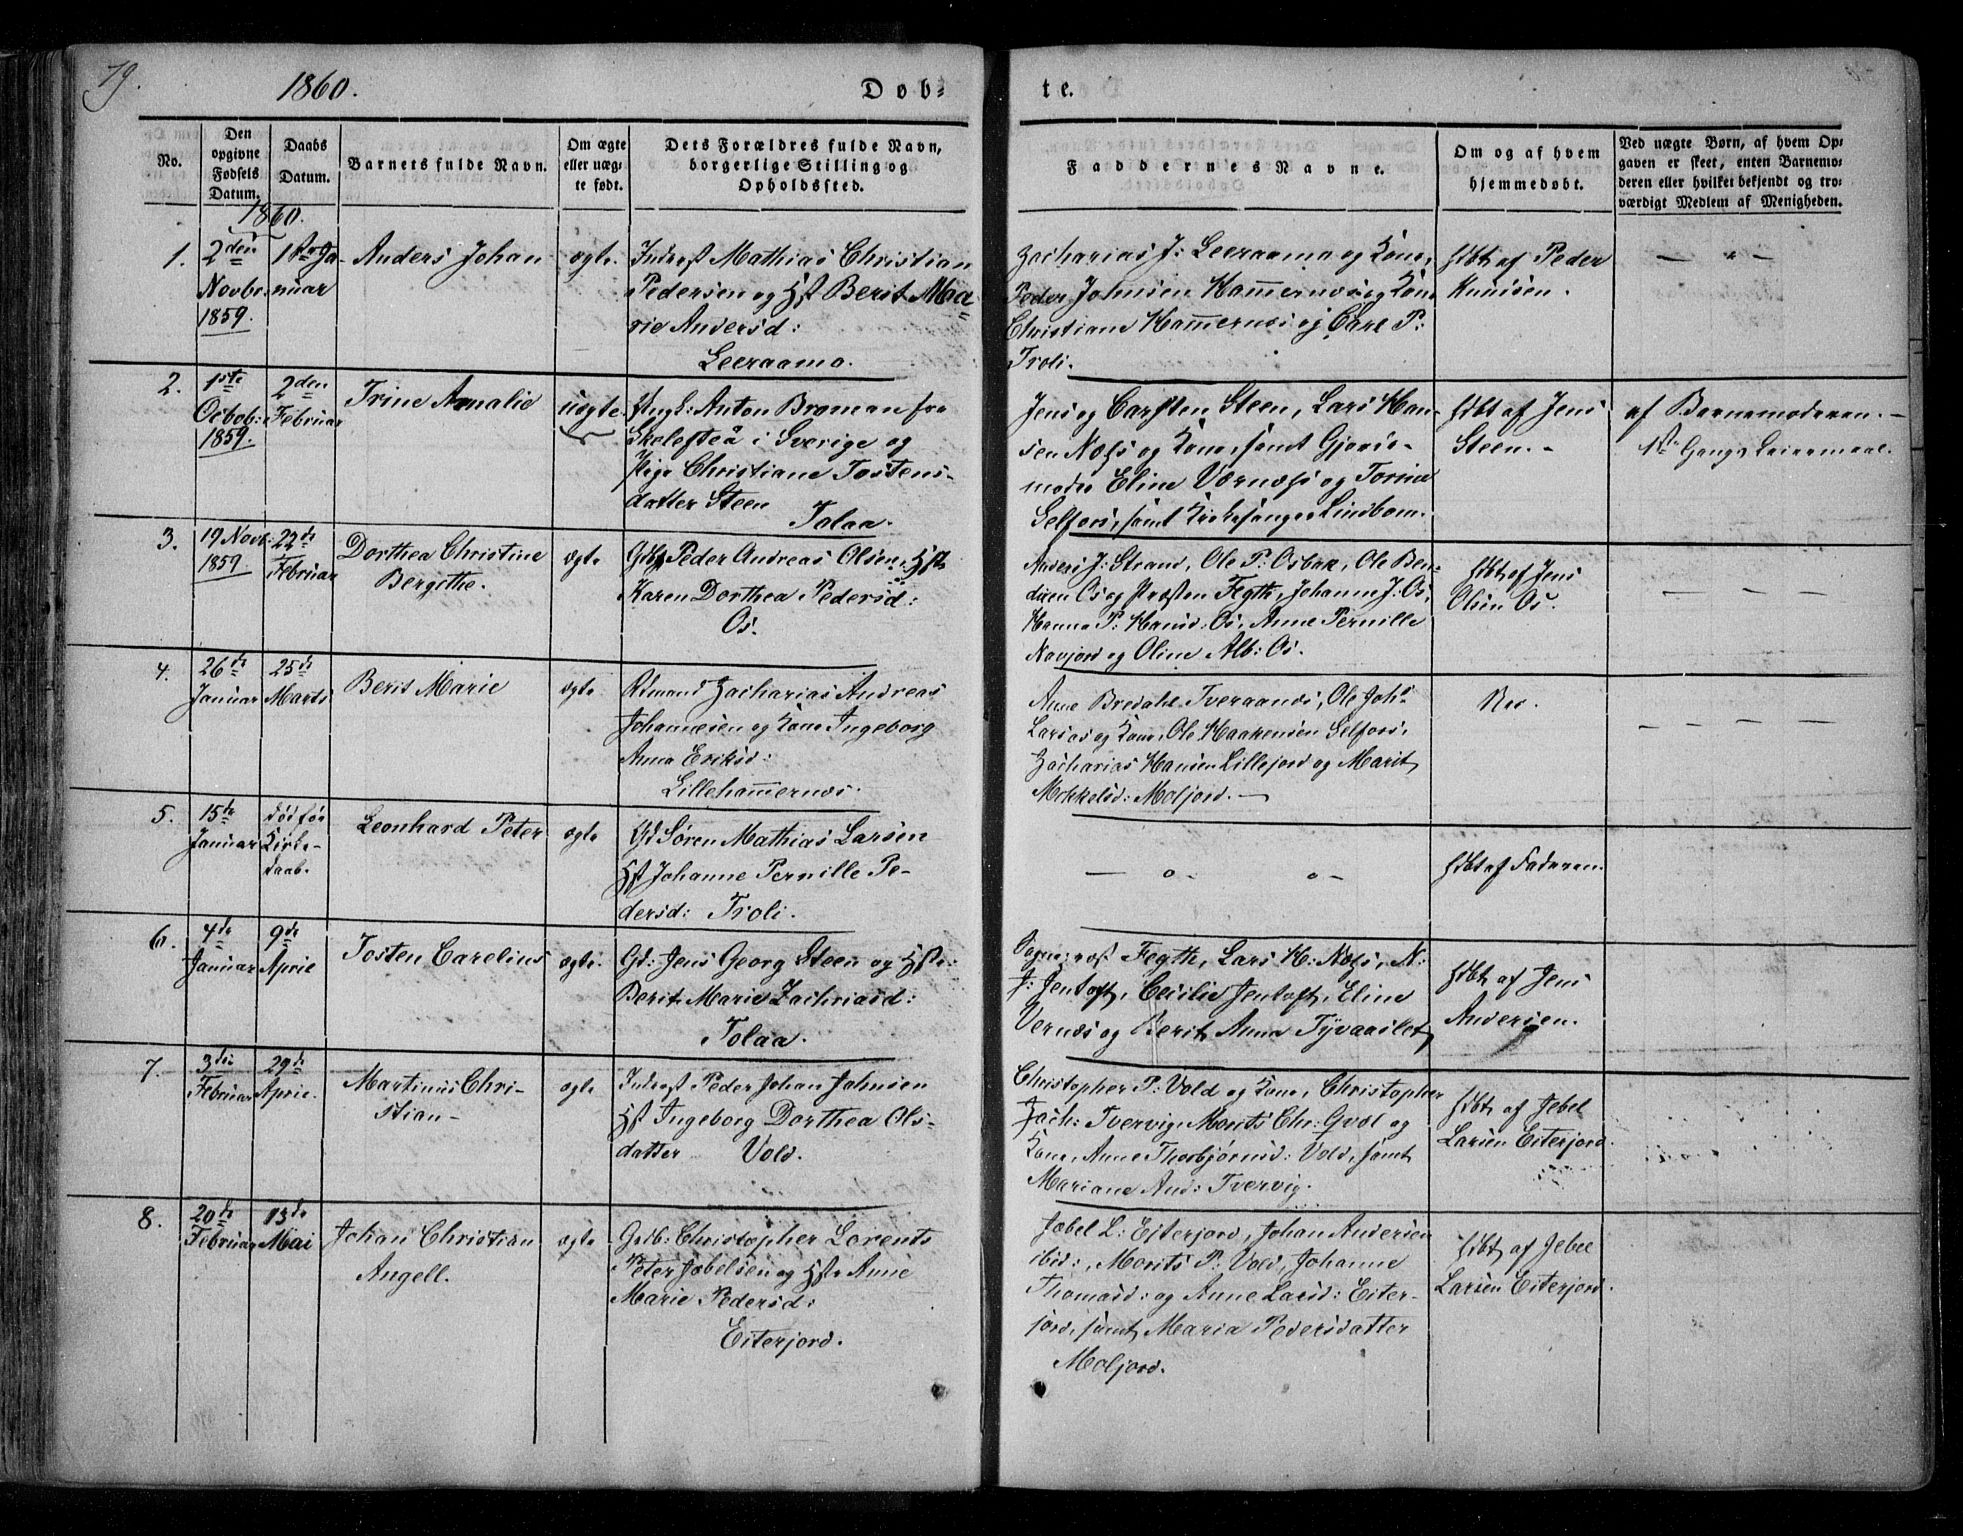 79.
1860.
Døb-
te.
No.
Den
opgivne
Fødsels
Datum.
Daabs
Datum.
Barnets fulde Navn.
Om ægte
eller uæg-
te født.
Dets Forældres fulde Navn,
borgerlige Stilling og
Opholdssted.
Faddernes Navne.
Om og af hvem
hjemmedøbt.
Ved uægte Børn, af hvem Op-
gaven er skeet, enten Barnemo-
deren eller hvilket bekjendt og tro-
værdigt Medlem af Menigheden.
1860.
1.
2den
Novbr.
1859.
1ste Ja-
nuar
Anders Johan
ægte
Inderst Mathias Christian
Pedersen og Hst Berit Ma-
rie Andersd:
Leeraamo.
Zacharias J: Leeraamo og Kone,
Peder Johnsen Hammernæs og Kone
Christiane Hammernæs og Carl P:
Troli.
hdbt af Peder
Knudsen.
2.
1ste
Octob:
1859.
2den
Februar
Trine Amalie
uægte
Ungk: Anton Broman fra
Skelefteå i Sverige og
Pige Christiane Tostens-
datter Steen
Tolaa.
Jens og Carsten Steen, Lars Han-
sen Næss og Kone, samt Gjords-
moder Eline Værnæss og Torine
Selfors, samt Kirkesanger Lindbom.
hdbt af Jens
Steen.
af Barnemoderen.
1ste Gangs Leiermaal.
3.
19 Novbr:
1859
22de
Februar
Dorthea Christine
Bergithe.
ægte
Gdb Peder Andreas Olsen, Hst
Karen Dorthea Pedersd:
Os.
Anders J: Strand, Ole P: Osbak, Ole Ben-
dixen Os og Præsten Fegth, Johanne J: Os,
Hanna P: Hansd: Os, Anne Pernille
Navjord og Oline Alb: Os.
hdbt af Jens
Olsen Os.
4.
26de
Januar
25de
Marts
Berit Marie
ægte
Rdmand Zacharias Andreas
Johannesen og Kone Ingeborg
Anna Eriksd:
Lillehammernæs.
Anne Bredahl Tveraanæs, Ole Johs
Larsos og Kone, Ole Haakensen Selfors,
Zacharias Hansen Lillejord og Marit
Mokkelsd: Moljord.
Nei.
5.
15de
Januar
død før
Kirke-
daab.
Leonhard Peter
ægte
Gd Søren Mathias Larsen
Hst Johanne Pernille Pe-
dersd: Troli.
hdbt af Faderen.
6.
4de
Januar
9de
April
Tosten Carelius
ægte.
Gd: Jens Georg Steen og Hst:
Berit Marie Zachriasd:
Tolaa.
Sognepræst Fegth, Lars H: Næss, N:
J: Jentoft, Cecilie Jentoft, Eline
Vernæs og Berit Anna Tyvaaslet,
hdbt af Jens
Andersen.
7.
3die
Februar
29de
April.
Martinus Chri-
stian
ægte
Inderst Peder Johan Johnsen
Hst Ingeborg Dorthea Ols-
datter Vold.
Christopher P: Vold og Kone, Christopher
Zach: Tvervig, Morits Chr: Gvæl og
Kone, Anne Thorbjørnsd: Vold, samt
Mariane And: Tvervig.
hdbt af Jebel
Larsen Eiterjord.
8.
20de
Februar
13de
Mai
Johan Christian
Angell.
ægte
Gdb: Christopher Lorents
Peter Jebelsen og Hst Anne
Marie Pedersd:
Eiterjord.
Jæbel L: Eiterjord, Johan Andersen
ibid:, Morits P: Vold, Johanne
Thomasd: og Anne Larsd: Eiter-
jord, samt Maria Pedersdatter
Moljord.
hdbt af Jebel
Larsen Eiterjord.